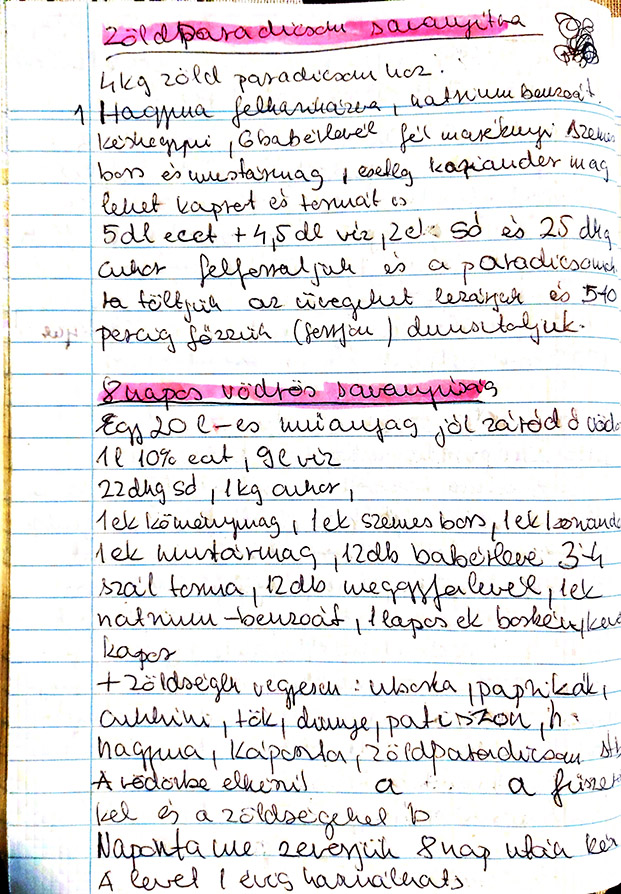 Zöldparadicsom savanyítva
4kg zöld paradicsomhoz:
1 Hagyma felkarikázva, nátrium benzoát
késhegynyi, 6 babérlevél fél maréknyi szemes
bors és mustármag, esetleg koriander mag
lehet kaprot és tormát is
5dl ecet + 4,5dl víz, 2ek só és 25 dkg
cukor felforraljuk és a paradicsomok
ra töltjük az üvegeket lezárjuk és 5-10
percig főzzük (forrjon) dunsztoljuk.
8 napos vödrös savanyúság
Egy 20 l-es műanyag jól záródó vödö
1l 10% ecet, 9l víz
22dkg só, 1kg cukor,
1ek köménymag, 1ek szemes bors, 1ek koriande
1ek mustármag, 12db babérlevé 3-4
szál torma, 12db meggyfalevél, 1ek
nátrium-benzoát, 1 lapos ek borkén,
kapor
+ zöldségek vegyesen: uborka, paprikák,
cukkini, tök, dinnye, patiszon, h.
hagyma, káposzta, zöldparadicsom stb
A vödörbe elkészül a a fűszer
kel és a zöldségekel is
Naponta me zeverjük 8 nap után kés
A level 1 évig használható